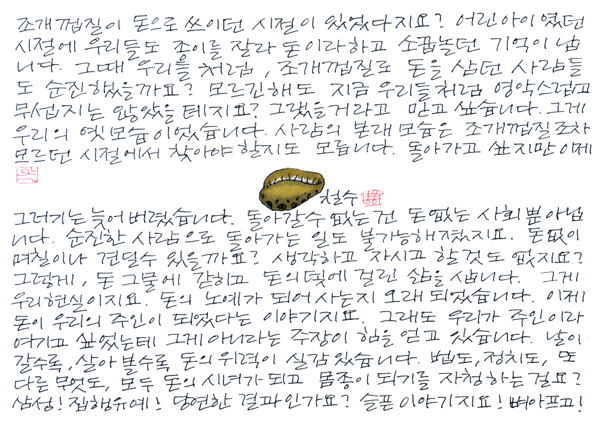 조개껍질이 돈으로 쓰이던 시절이 있었다지요? 어린아이였던
시절에 우리들도 종이를 잘라 돈이라하고 소꿉놀던 기억이 납
니다. 그때 우리들처럼, 조개껍질로 돈을 삼던 사람들
도 순진했을까요? 모르긴해도 지금 우리들처럼 영악스럽고
무섭지는 않았을테지요? 그랬을거라고 믿고 싶습니다. 그게
우리의 옛모습이었습니다. 사람의 본래 모습은 조개껍질조차
모르던 시절에서 찾아야 할지도 모릅니다. 돌아가고 싶지만 이제
철수
그러기는 늦어 버렸습니다. 돌아갈수 없는건 돈없는 사회뿐아닙
니다. 순진한 사람으로 돌아가는 일도 불가능해졌지요. 돈없이
며칠이나 견딜수 있을까요? 생각하고 자시고 할것도 없지요?
그렇게, 돈 그물에 갇히고 돈의 덫에 걸린 삶을 삽니다. 그게
우리현실이지요. 돈의 노예가 되어 사는지 오래 되었습니다. 이제
돈이 우리의 주인이 되었다는 이야기지요. 그래도 우리가 주인이라
여기고 싶었는데 그게 아니라는 주장이 힘을 얻고 있습니다. 날이
갈수록, 살아 볼수록 돈의 위력이 실감 있습니다. 법도, 정치도, 또
다른 무엇도, 모두 돈의 시녀가 되고 몸종이 되기를 자청하는 걸요?
삼성! 집행유예! 당연한 결과인가요? 슬픈 이야기지요! 뼈아프고!